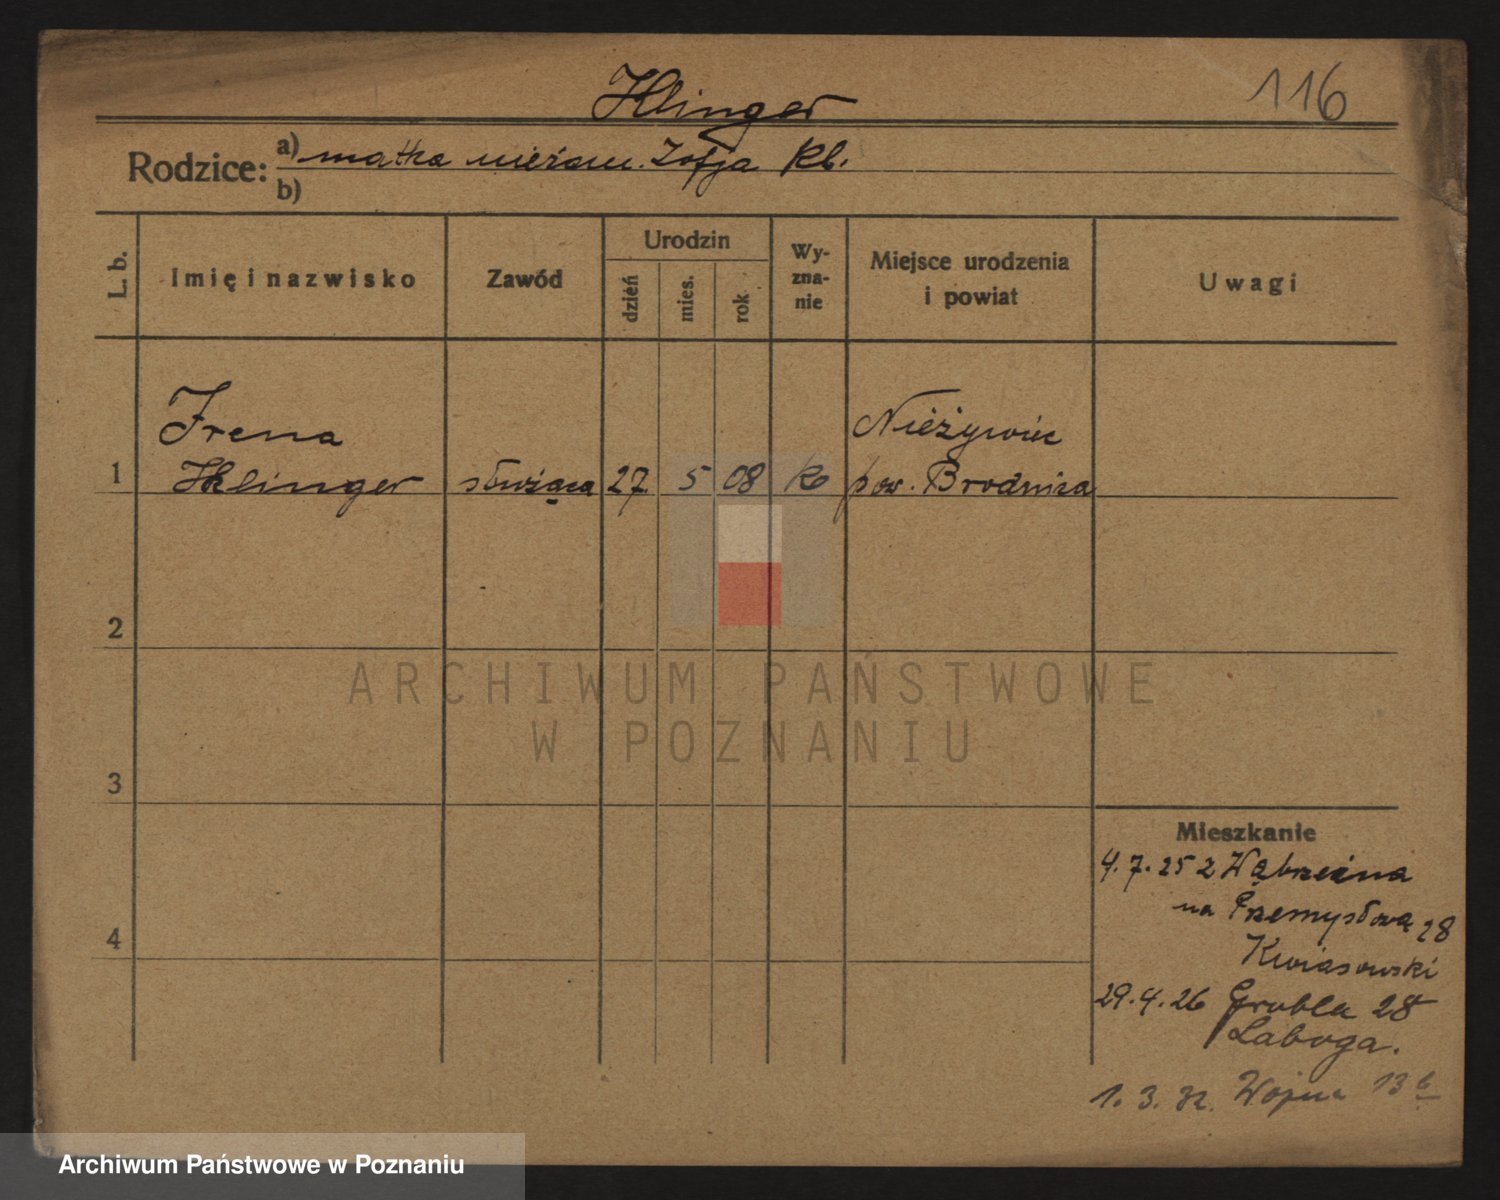 Klinger
116
Rodzice: a) matka nieżam. Zofja Kl.
b)
L. b.
Imię i nazwisko
Zawód
Urodzin
dzień
mies.
rok
Wy-
zna-
nie
Miejsce urodzenia
i powiat
Uwagi
Irena
Nieżywiec
1 Klinger służąca 27 5 08 pow. Brodnica
2
ARCHIWUM PAŃSTWOWE
W POZNANIU
3
Mieszkanie
4.7.25 z Wąbrzeźna
na Przemysłową 28
4
Kwiasowski
29.4.26 Grobla 28
Laboga.
1.3.32. Wojna 13 b
Archiwum Państwowe w Poznaniu